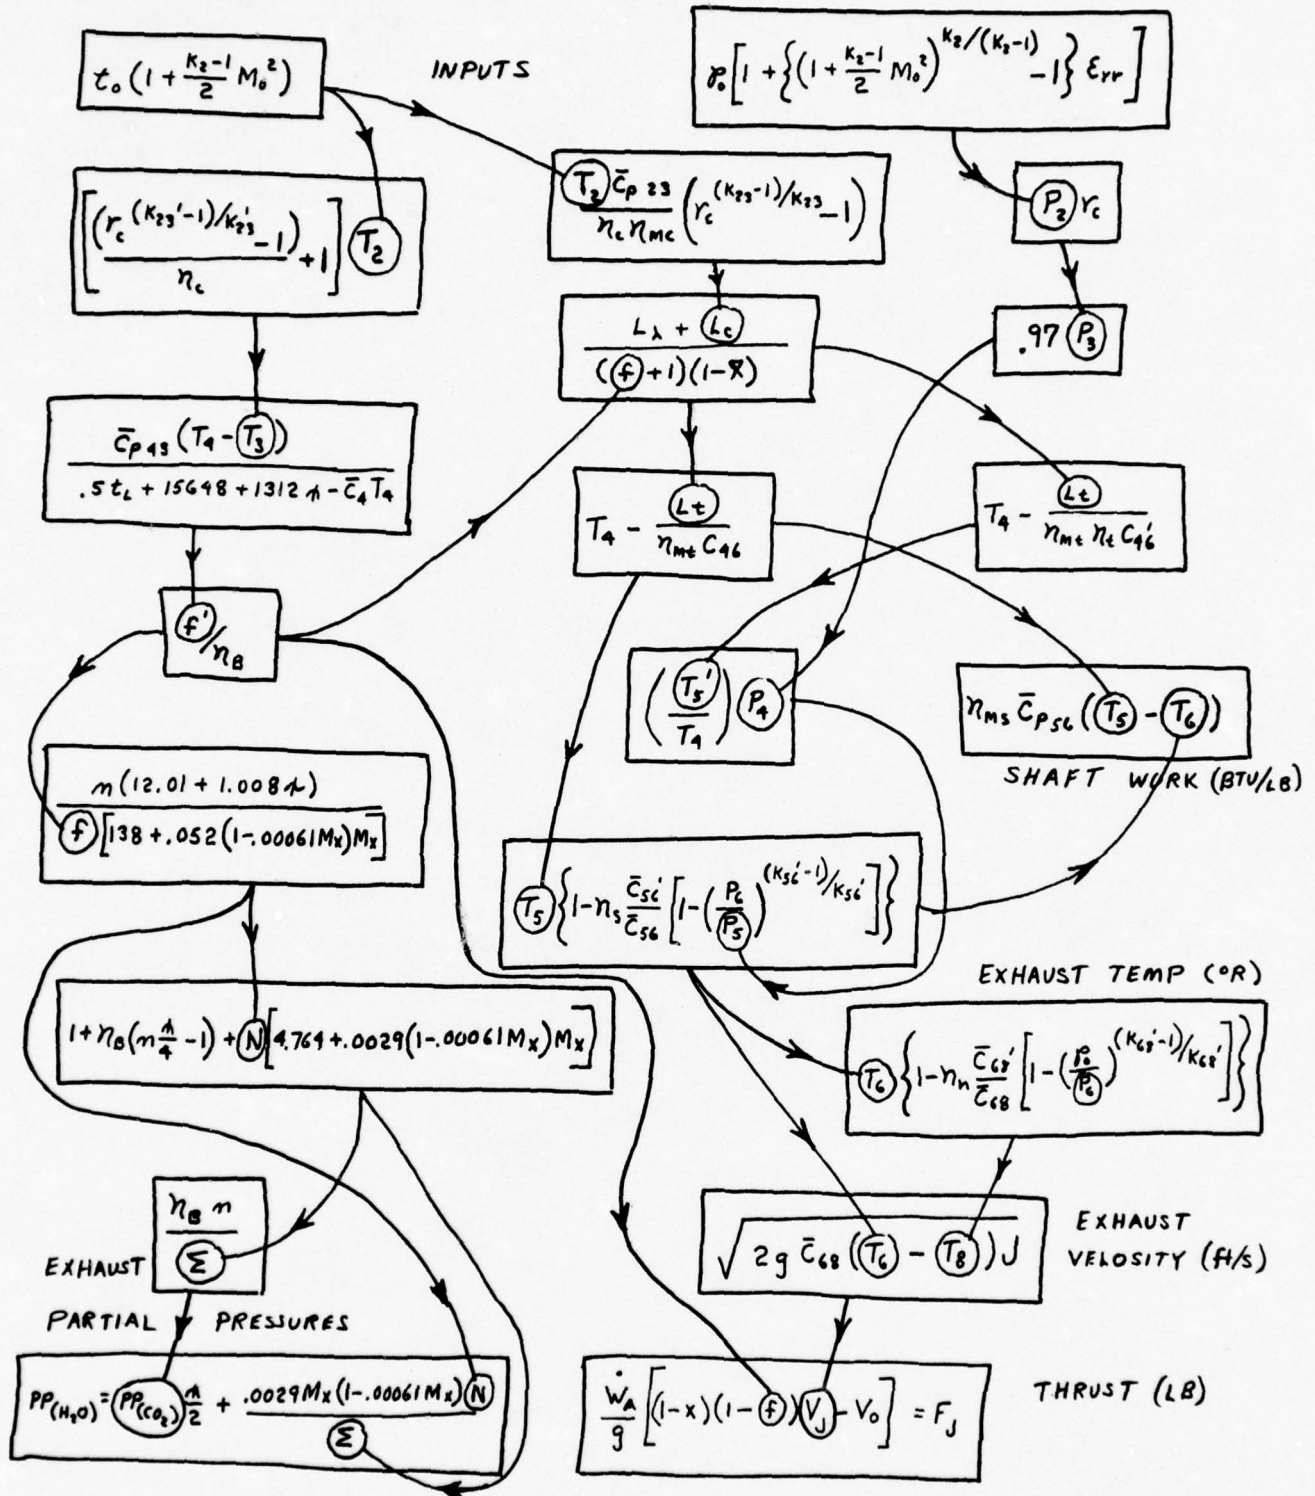 t₀(1 + (K₂-1)/2 M₀²)
INPUTS
p₀[1 + {(1 + (K₂-1)/2 M₀²)^(K₂/(K₂-1) -1} εrr]
[((rc^((K23'-1)/K23') -1)/ηc) +1] T₂
(T₂ C̄p23)/(ηc ηmc) (rc^((K23-1)/K23) -1)
P₂ rc
(Lλ + Lc)/((f+1)(1-x))
.97 P₃
(C̄p43 (T4 - T3))/(.5tL + 15648 + 1312 r - C̄4 T4)
T4 - Lt/(ηmt C46)
T4 - Lt/(ηmt ηt C46')
f'/ηB
(T5'/T4) P4
ηms C̄p56 (T5 - T6))
SHAFT WORK (BTU/LB)
n(12.01 + 1.008r)/(f[138 + .052(1-.00061Mx)Mx])
T5{1-ηs C̄56'/C̄56 [1-(P6/P5)^((K56'-1)/K56')]}
EXHAUST TEMP (°R)
1+ηB(n r/4 -1) + N[4.764+.0029(1-.00061Mx)Mx]
T6{1-ηn C̄68'/C̄68 [1-(p₀/P6)^((K68'-1)/K68')]}
ηB n/Σ
√(2g C̄68 (T6 - T8)) J
EXHAUST
VELOSITY (ft/s)
EXHAUST
PARTIAL PRESSURES
PP(H₂O) = PP(CO₂) r/2 + (.0029Mx(1-.00061Mx) N)/Σ
ẆA/g [(1-x)(1-f))VJ - V₀] = FJ
THRUST (LB)